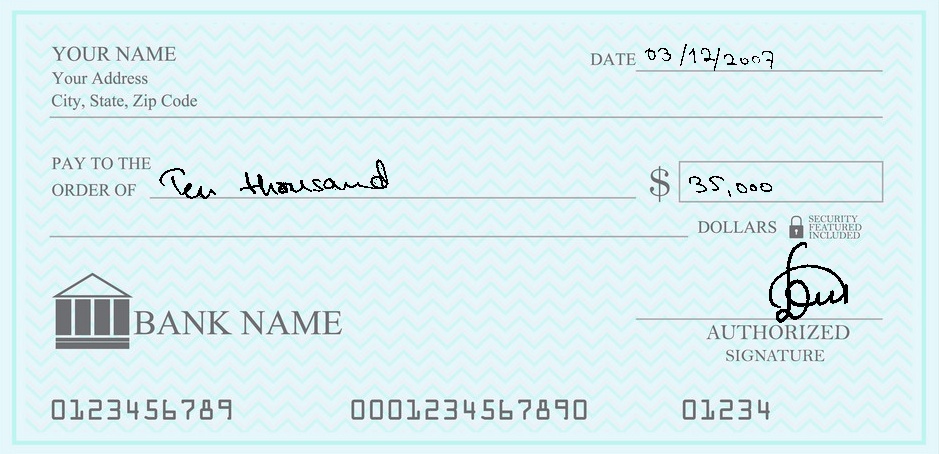 YOUR NAME
DATE 03/12/2007
Your Address
City, State, Zip Code
PAY TO THE
ORDER OF Ten thousand $ 35,000
DOLLARS SECURITY
FEATURED
INCLUDED
BANK NAME
AUTHORIZED
SIGNATURE
0123456789 0001234567890 01234